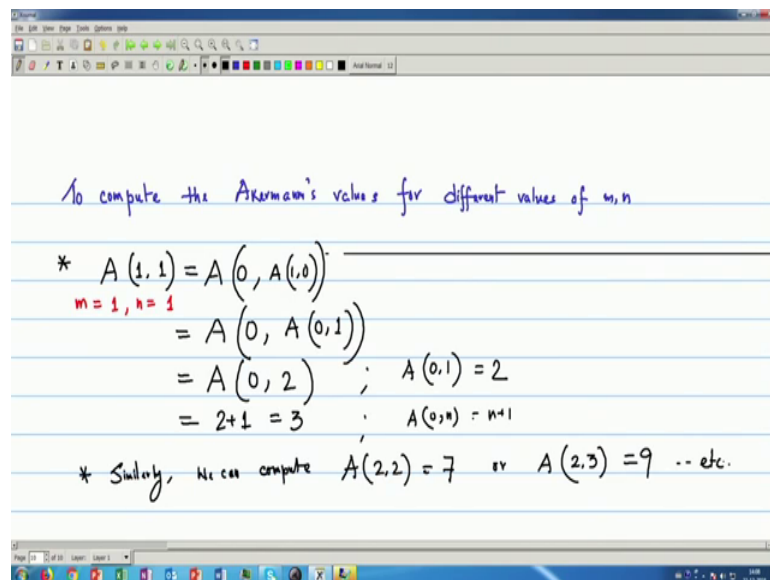 File Edit View Page Tools Options Help
To compute the Akermann's values for different values of m, n
* A(1, 1) = A(0, A(1,0))
m = 1, n = 1
= A(0, A(0,1))
= A(0, 2) ; A(0,1) = 2
= 2+1 = 3 ; A(0,n) = n+1
* Similarly, we can compute A(2,2) = 7 or A(2,3) = 9 -- etc.